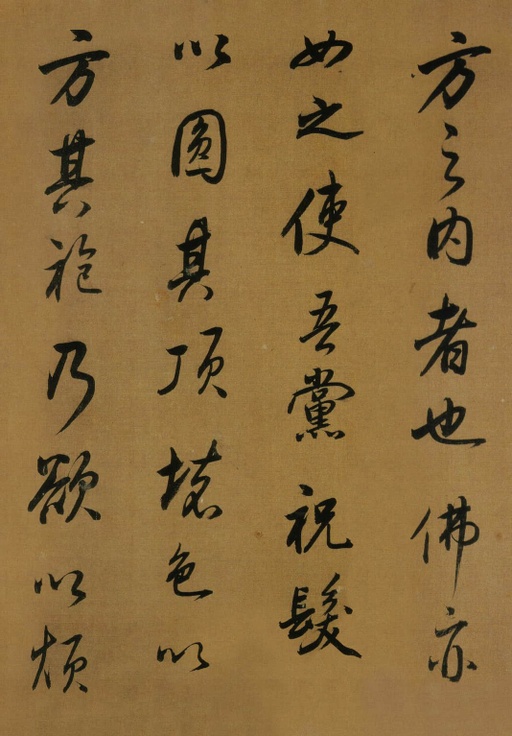 方之内者也佛亦
如之使吾黨祝髮
以圓其頂壞色以
方其袍乃欲以煩